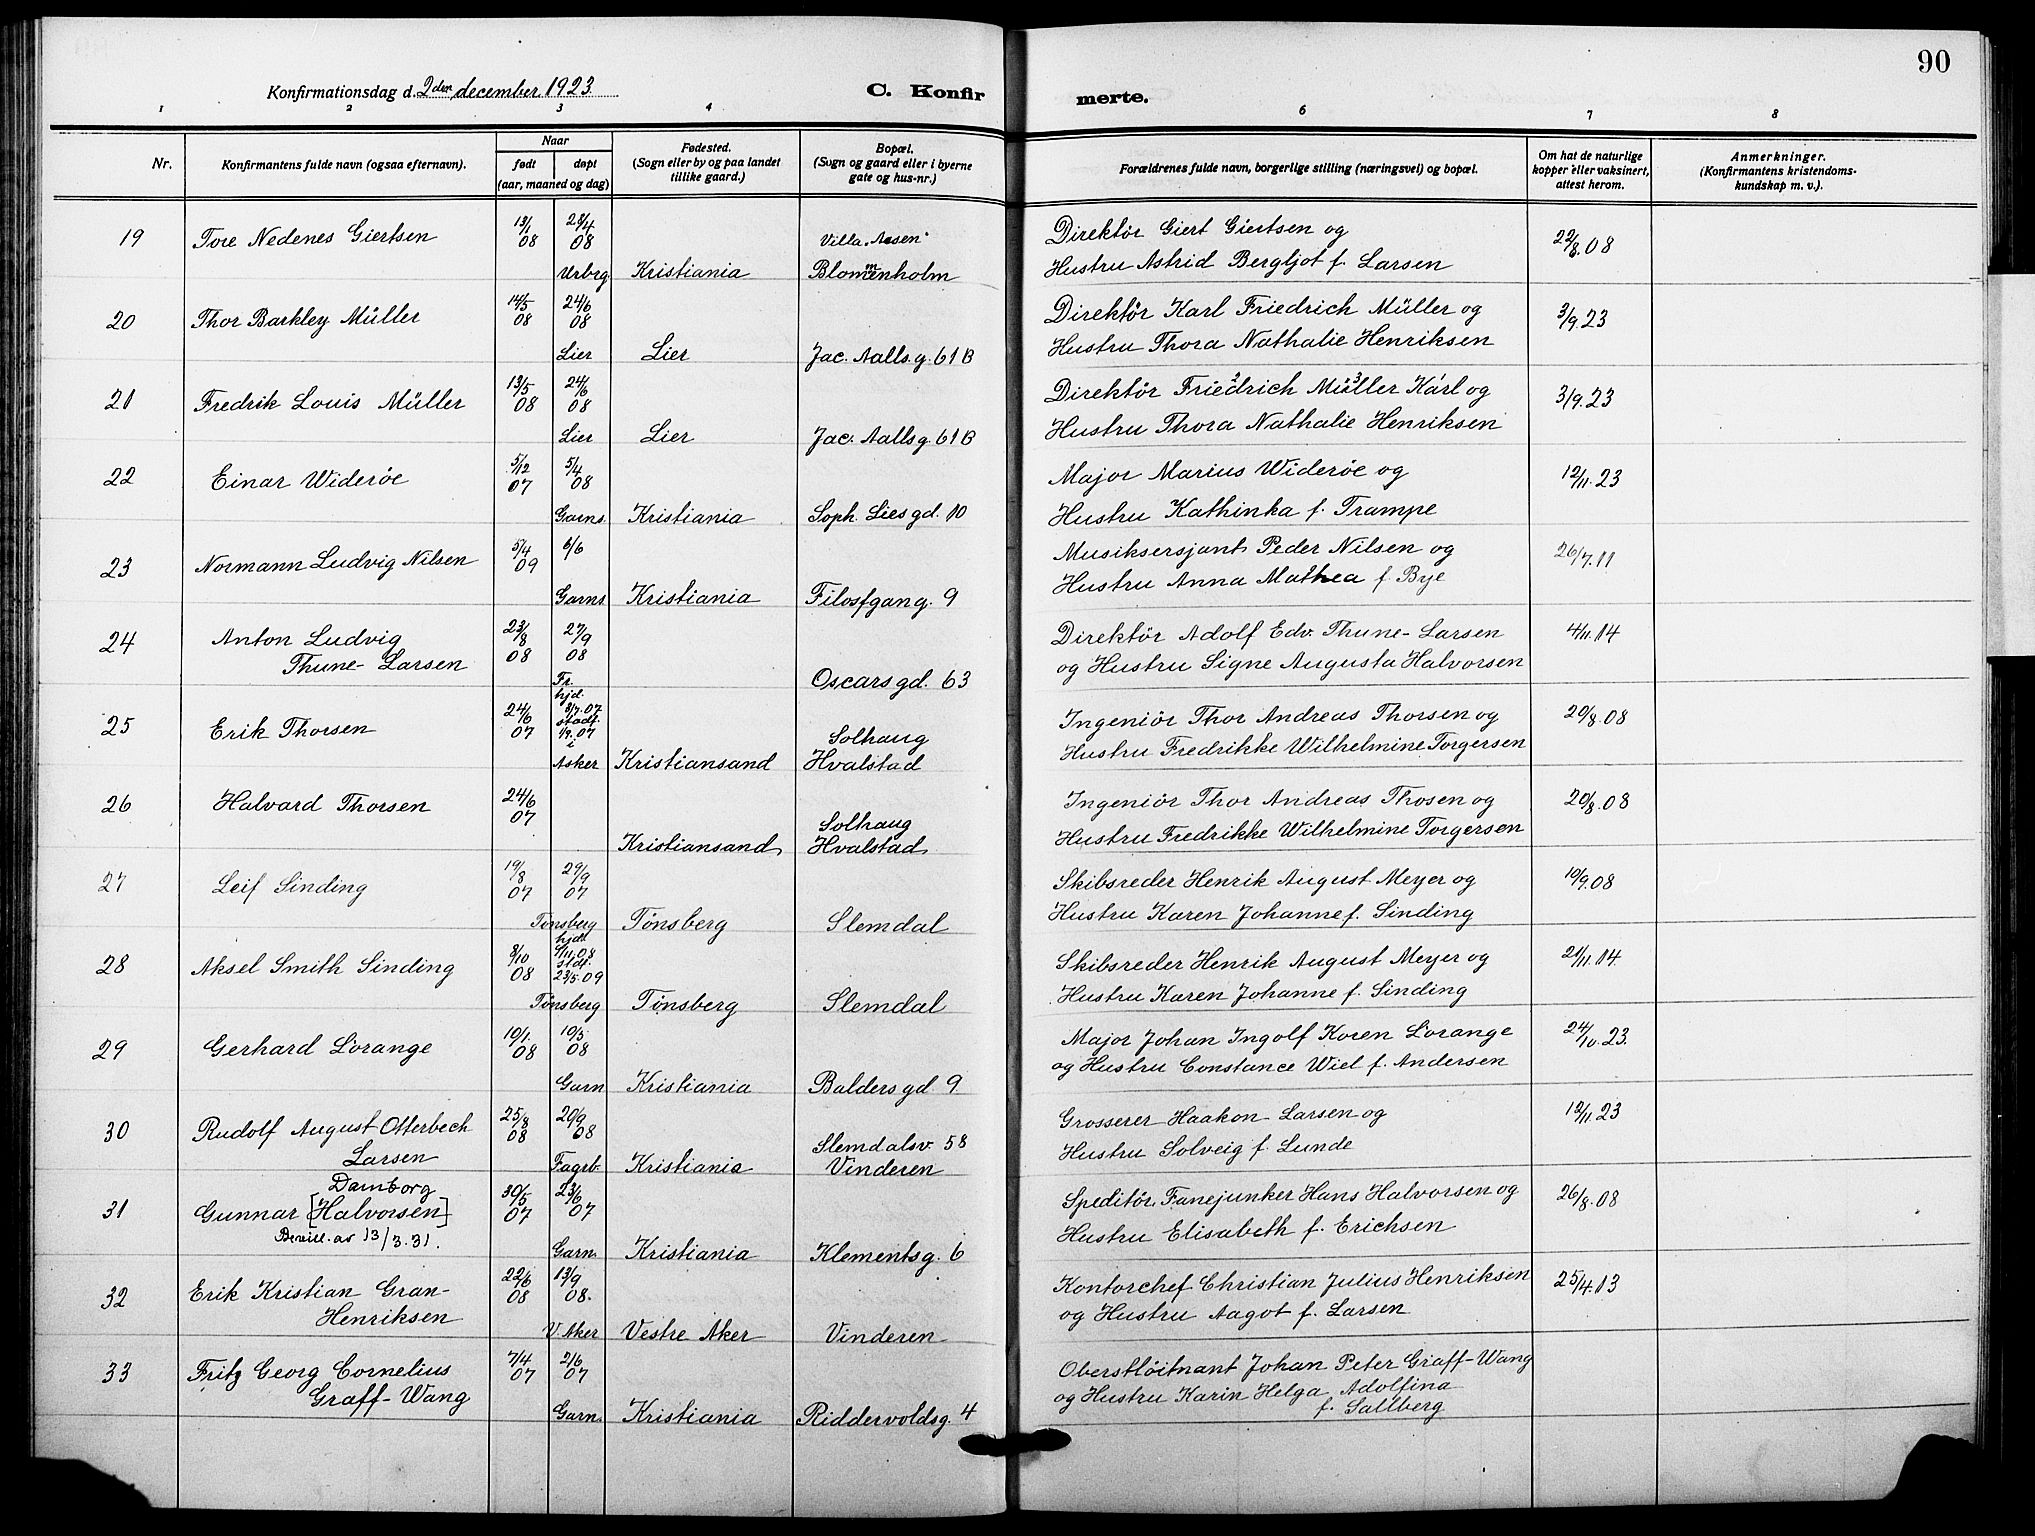 90
Konfirmationsdag d. 2den december 1923. C. Konfirmerte.
1 2 3 4 6 7 8
Nr. Konfirmantens fulde navn (ogsaa efternavn). Naar født døpt (aar, maaned og dag) Fødested. (Sogn eller by og paa landet tillike gaard.) Bopæl. (Sogn og gaard eller i byerne gate og hus-nr.) Forældrenes fulde navn, borgerlige stilling (næringsvei) og bopæl. Om hat de naturlige kopper eller vaksinert, attest herom. Anmerkninger. (Konfirmantens kristendomskundskap m. v.).
19 Tore Nedenes Giertsen 13/1 08 28/4 08 Villa "Aasen" Direktör Giert Giertsen og 22/8.08
Urbrg. Kristiania Blommenholm Hustru Astrid Bergljot f. Larsen
20 Thor Barkley Müller 14/5 08 24/6 08 Direktör Karl Friedrich Müller og 3/9.23
Lier Lier Jac. Aalls g. 61 B Hustru Thora Nathalie Henriksen
21 Fredrik Louis Müller 13/5 08 24/6 08 Direktör Friedrich Müller Karl og 3/9.23
Lier Lier Jac. Aalls g. 61 B Hustru Thora Nathalie Henriksen
22 Einar Wideröe 5/12 07 5/4 08 Major Marius Wideröe og 12/11.23
Garns. Kristiania Soph. Lies gd. 10 Hustru Kathinka f. Trampe
23 Normann Ludvig Nilsen 5/4 09 6/6 Musiksersjant Peder Nilsen og 26/7.11
Garns Kristiania Filosfgang. 9 Hustru Anna Mathea f. Bye
24 Anton Ludvig 23/8 08 27/9 08 Direktör Adolf Edv. Thune-Larsen 4/11.14
Thune-Larsen Fr. Oscars gd. 63 og Hustru Signe Augusta Halvorsen
25 Erik Thorsen 24/6 07 hjd. 8/7.07 stadf. 1/9.07 i Solhaug Ingeniör Thor Andreas Thorsen og 20/8.08
Asker Kristiansand Hvalstad Hustru Fredrikke Wilhelmine Torgersen
26 Halvard Thorsen 24/6 07 Solhaug Ingeniör Thor Andreas Thosen og 20/8.08
Kristiansand Hvalstad Hustru Fredrikke Wilhelmine Torgersen
27 Leif Sinding 19/8 07 29/9 07 Skibsreder Henrik August Meyer og 10/9.08
Tönsberg Tönsberg Slemdal Hustru Karen Johanne f. Sinding
28 Aksel Smith Sinding 8/10 08 hjdt /11.08 stdf. 23/5.09 Skibsreder Henrik August Meyer og 21/11.14.
Tönsberg Tönsberg Slemdal Hustru Karen Johanne f. Sinding
29 Gerhard L'orange 10/1. 08 10/3 08 Major Johan Ingolf Koren L'orange 24/10.23.
Garn Kristiania Balders gd 9 og Hustru Constance Wiel f. Andersen
30 Rudolf August Otterbech 25/8 08 20/9 08 Slemdalsv. 58 Grosserer Haakon Larsen og 12/11.23
Larsen Fagrb. Kristiania Vinderen Hustru Solveig f. Lunde
Damborg
31 Gunnar [Halvorsen] 30/5 07 23/6 07 Speditör, Fanejunker Hans Halvorsen og 26/8.08
Bevill. av 13/3.31. Garn. Kristiania Klementsg. 6 Hustru Elisabeth f. Erichsen
32 Erik Kristian Gran- 22/6 08 13/9 08. Kontorchef Christian Julius Henriksen 25/4.13
Henriksen V. Aker Vestre Aker Vinderen og Hustru Aagot f. Larsen
33 Fritz Georg Cornelius 7/4 07 2/6 07 Oberstlöitnant Johan Peter Graff-Wang
Graff-Wang Garn. Kristiania Riddervoldsg. 4 og Hustru Karin Helga Adolfina
f. Sallberg